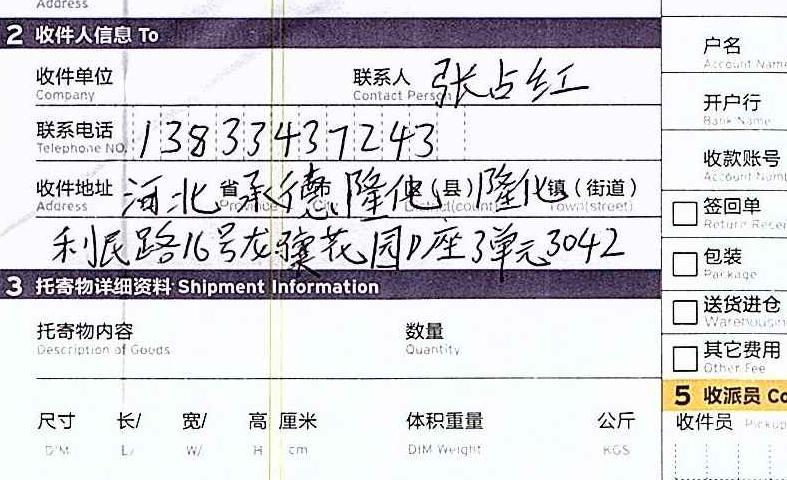 Address
2 收件人信息 To
收件单位 联系人 张占红
Company Contact Person
联系电话 13833437243
Telephone NO.
收件地址 河北省承德市隆化区(县)隆化镇(街道)
Address Province City District(county) Town(street)
利民路16号龙骧花园D座3单元3042
3 托寄物详细资料 Shipment Information
托寄物内容 数量
Description of Goods Quantity
尺寸 长/ 宽/ 高 厘米 体积重量 公斤
DIM L/ W/ H cm DIM Weight KGS
户名
Account Name
开户行
Bank Name
收款账号
Account Num
签回单
Return Recei
包装
Package
送货进仓
Warehousin
其它费用
Other Fee
5 收派员 Co
收件员 Pickup